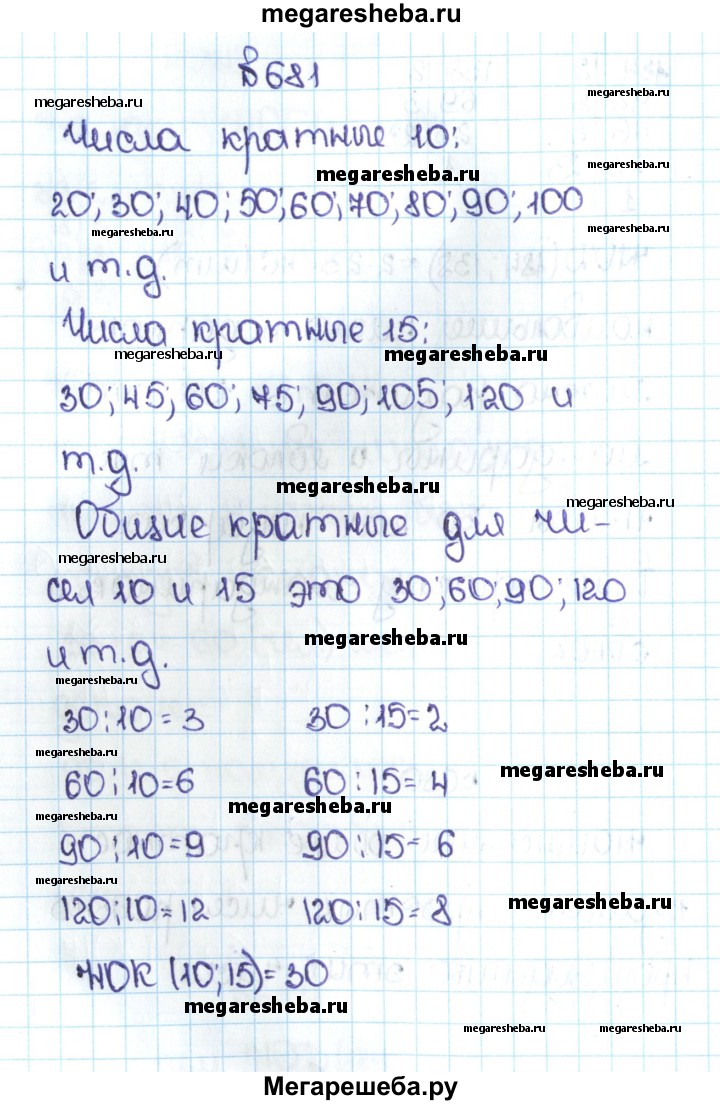 megaresheba.ru
№ 681
megaresheba.ru
megaresheba.ru
Числа кратные 10:
megaresheba.ru
megaresheba.ru
20; 30; 40; 50; 60; 70; 80; 90; 100
megaresheba.ru
megaresheba.ru
и т.д.
Числа кратные 15:
megaresheba.ru
megaresheba.ru
30; 45; 60; 75; 90; 105; 120 и
т.д.
megaresheba.ru
megaresheba.ru
Общие кратные для чи-
megaresheba.ru
сел 10 и 15 это 30; 60; 90; 120
megaresheba.ru
и т.д.
megaresheba.ru
30:10=3 30:15=2
megaresheba.ru
megaresheba.ru
60:10=6 60:15=4
megaresheba.ru
megaresheba.ru
90:10=9 90:15=6
megaresheba.ru
megaresheba.ru
120:10=12 120:15=8
НОК (10; 15)=30
megaresheba.ru
megaresheba.ru megaresheba.ru
Мегарешеба.ру